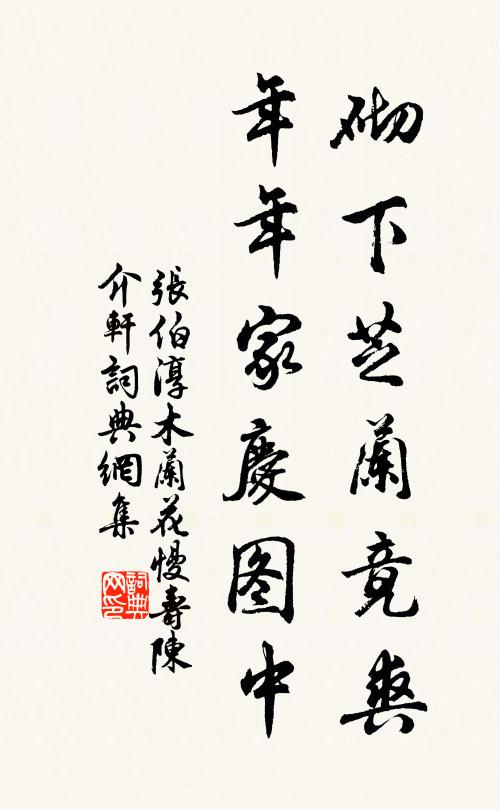 砌下芝蘭竟爽
年年家慶图中
張伯淳木蘭花慢壽陳
介軒詞典網集
詞典网印